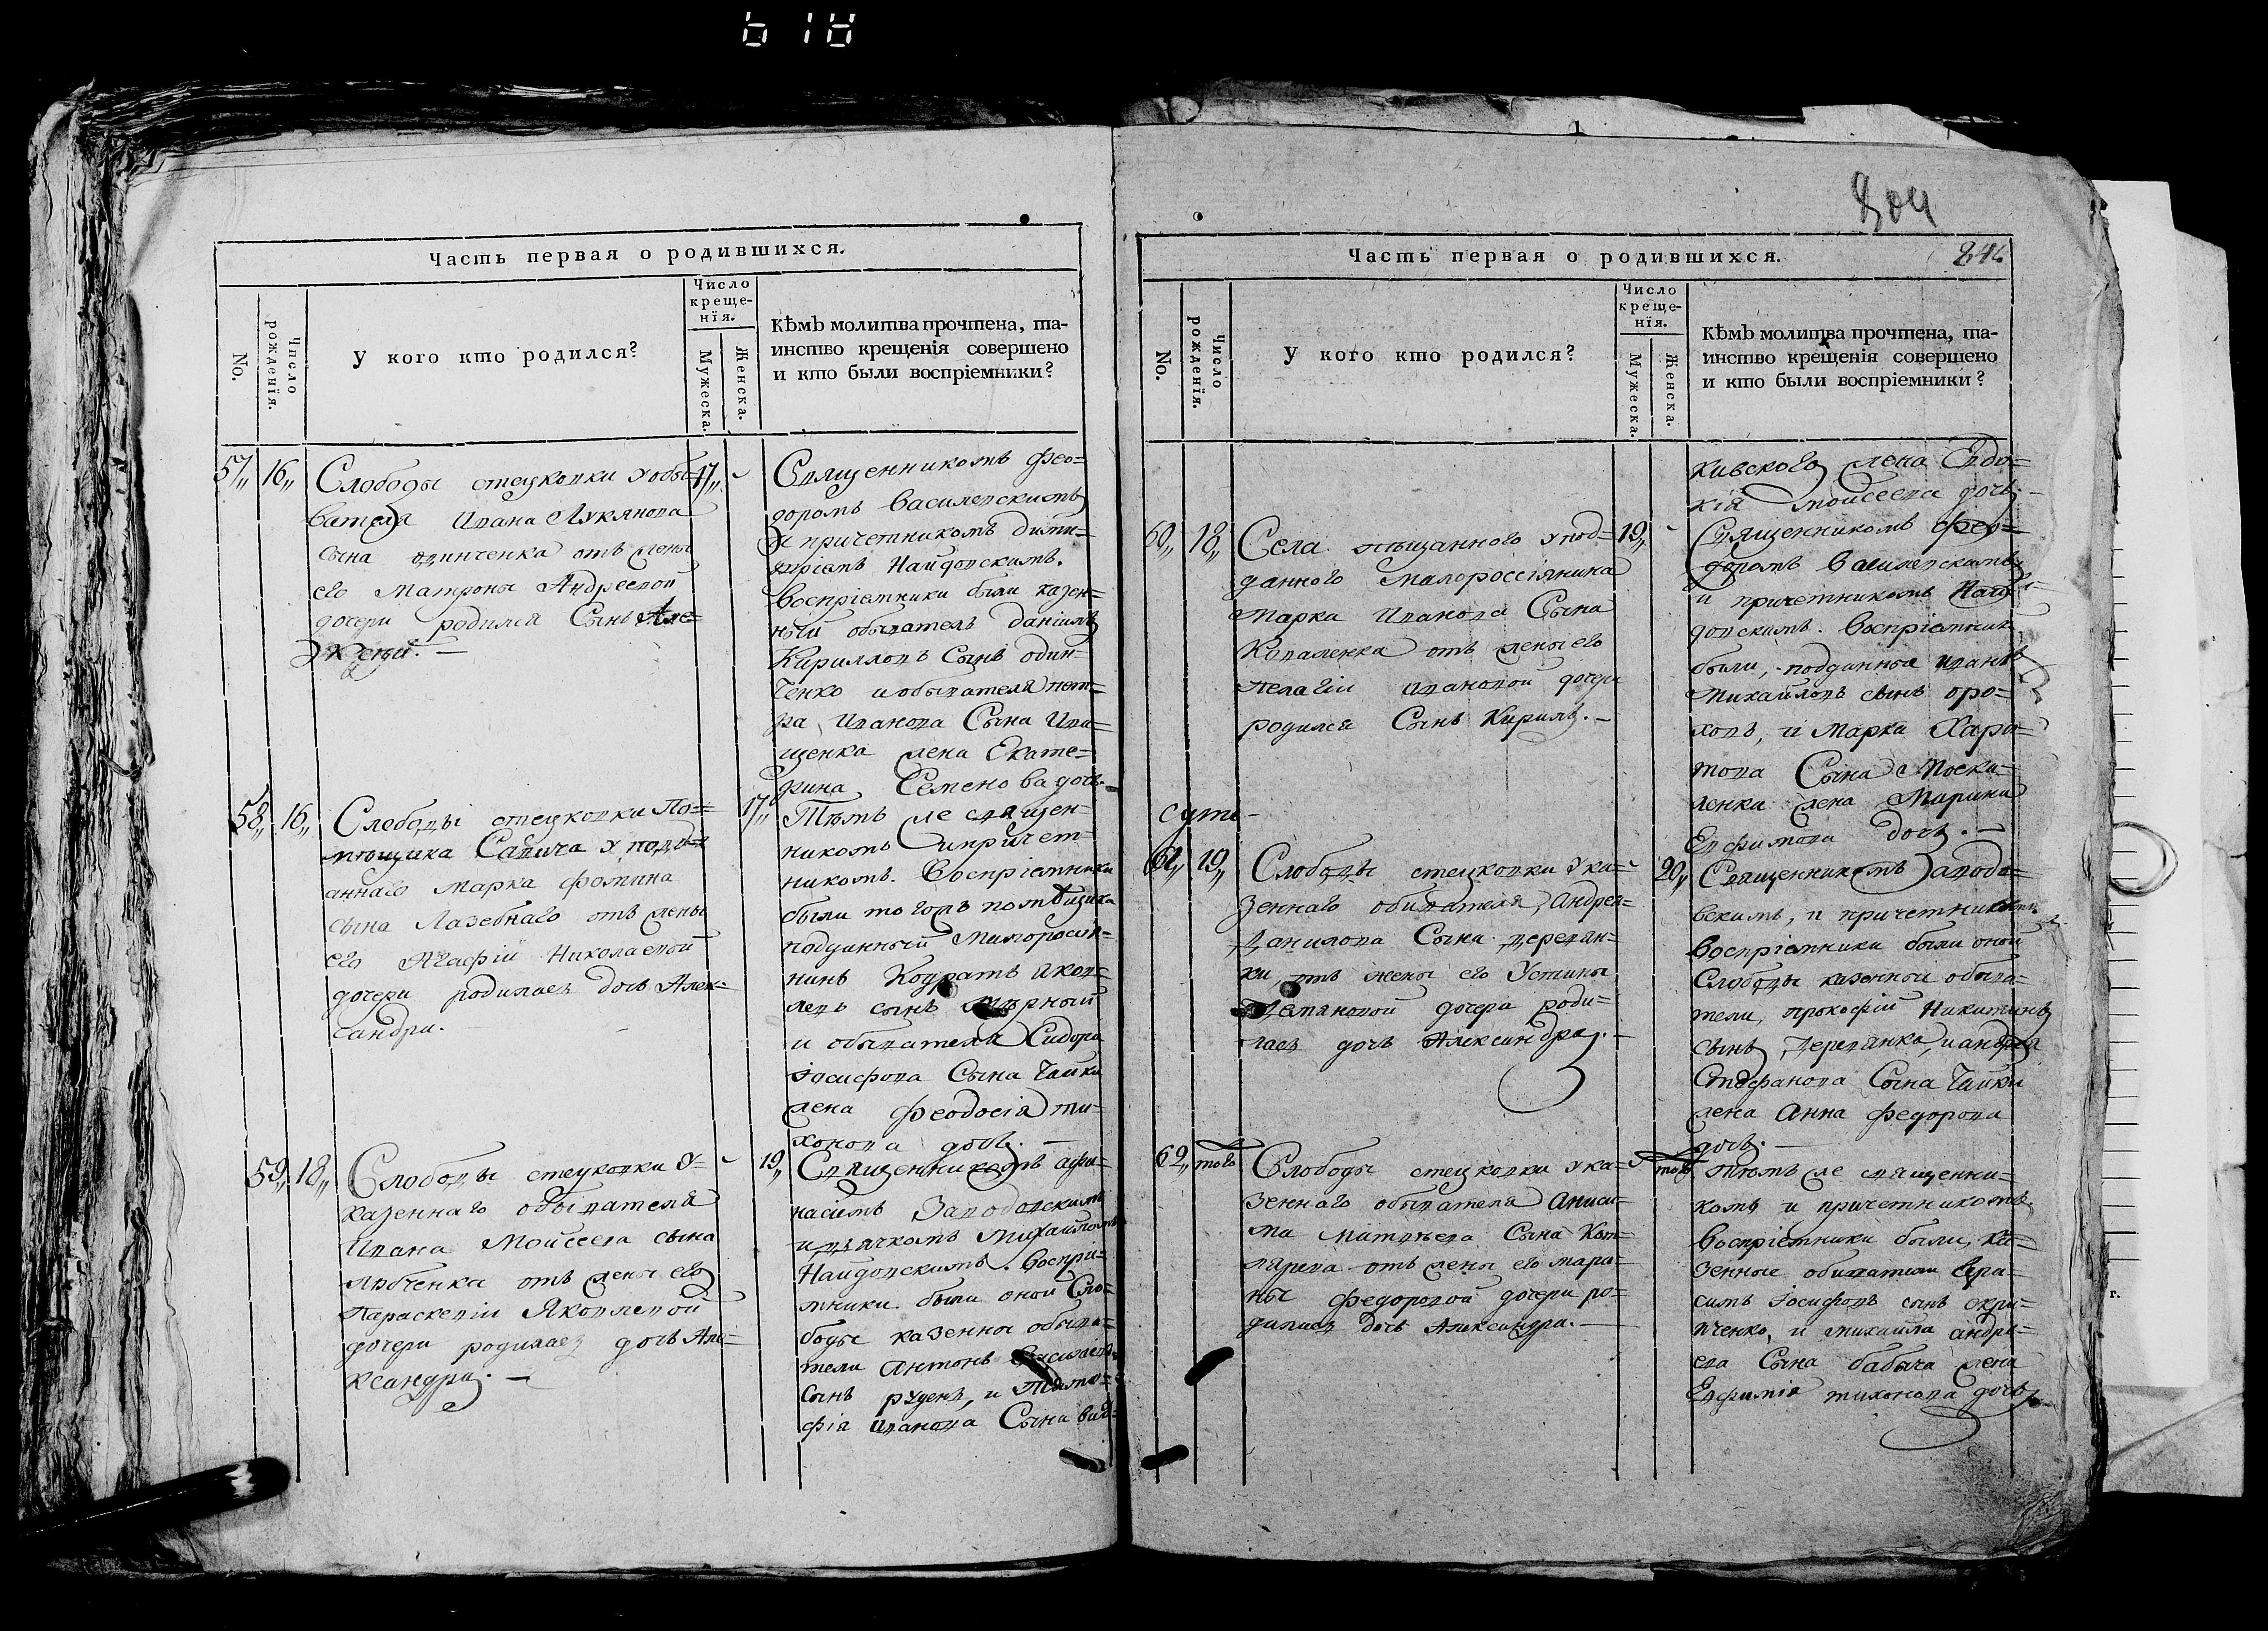 618
Часть первая о родившихся.
No.
Число рожденїя.
У кого кто родился?
Число
креще-
нїя.
Мужеска.
Женска.
Кѣмъ молитва прочтена, та-
инство крещенїя совершено
и кто были воспрїемники?
57,, 16,,
Слободы стецковки у обы-
вателя Ивана Лукянова
сына одинченка отъ жены
его Матроны Андреевой
дочери родился Сынъ Але-
ксѣй. —
17,,
Священникомъ Фео-
доромъ Василевскимъ
и причетникомъ Дими-
тріемъ Найдовскимъ.
Воспріемники были казен-
ный обыватель Даніилъ
Кирилловъ Сынъ один-
ченко и обывателя пет-
ра Иванова Сына Ива-
щенка жена Екате-
рина Семенова дочь.
58,, 16,,
Слободы стецковки По-
мѣщика Савича у подд-
аннаго Марка Фомина
сына Лазебнаго отъ жены
его Агафіи Николаевой
дочери родилась дочь Алек-
сандра.
17,,
Тѣмъ же священ-
никомъ и причет-
никомъ. Воспріемники
были тогожъ помѣщика
подданный Малоросія-
нинъ Кондратъ Яков-
левъ сынъ
и обывателя Сидора
Іосифова Сына Чайки
жена Феодосія ти-
хонова дочь. —
59,, 18,,
Слободы стецковки у
казеннаго обывателя
Ивана Моисеева сына
отъ жены его
Параскевіи Яковлевой
дочери родилась дочь Але-
ксандра. —
19,,
Священникомъ Афа-
насіемъ Заводовскимъ
и дьячкомъ Михайломъ
Найдовскимъ. Воспрі-
мники были оной Сло-
боды казенны обыва-
тели Антонъ
Сынъ руденъ, и Тимо-
фія Иванова Сына вил-
804
Часть первая о родившихся.
246
No.
Число рожденїя.
У кого кто родился?
Число
креще-
нїя.
Мужеска.
Женска.
Кѣмъ молитва прочтена, та-
инство крещенїя совершено
и кто были воспрїемники?
кивского жена Евдо-
кія Моисеева дочь. —
60,, 18,,
Села пѣщанного у под-
данного Малороссіянина
Марка Иванова Сына
Коваленка отъ жены его
Пелагіи Ивановой дочери
родился Сынъ Кирилъ. —
19,,
Священникомъ Фео-
доромъ Василевскимъ
и причетникомъ Най-
довскимъ. Воспріемники
были, подданные Иванъ
Михайловъ сынъ оро-
ховъ, и Марка Хари-
това Сына Моска-
ленка жена Марина
Евфимова дочь. —
61,, 19,,
Слободы стецковки у ка-
зеннаго обивателя, Андрея
Данилова Сына деревян-
ки, отъ жены его Устины
Демяновой дочери роди-
лась дочь Александра. —
20,,
Священникомъ Заводо-
вскимъ, и причетникомъ.
Воспріемники были оной
Слободы казенный обыва-
тели, Прокофій Никитинъ
Сынъ, Деревянко, и Андрея
Стефанова Сына Чайки
жена Анна Федорова
дочь. —
62,, того
Слободы стецковки у ка-
зеннаго обывателя Аниси-
ма Матвѣева Сына Кот-
лярева отъ жены его мари-
ны Федоровой дочери ро-
дилась дочь Александра. —
того
тѣмъ же священни-
комъ и причетникомъ
Воспріемники были, ка-
зенные обиватели Гера-
симъ Іосифовъ сынъ скри-
пченко, и Михаила Андре-
ева Сына бабыча жена
Евфимія тихонова дочь.